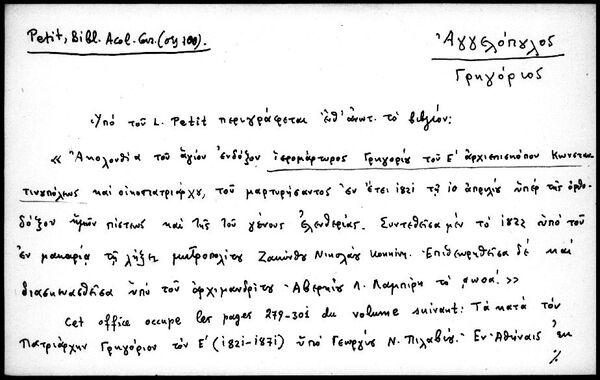 Petit, Bibl. Acol. Gr. (σχ 100).
Ἀγγελόπουλος
Γρηγόριος
Ὑπό τοῦ L. Petit περιγράφεται ἐνθ' ἀνωτ. τό βιβλίον:
« Ἀκολουθία τοῦ ἁγίου ἐνδόξου ἱερομάρτυρος Γρηγορίου τοῦ Ε' ἀρχιεπισκόπου Κωνσταν
τινουπόλεως καί οἰκ. πατριάρχου, τοῦ μαρτυρήσαντος ἐν ἔτει 1821 τῇ 10 ἀπριλίου ὑπέρ τῆς ὀρθο-
δόξου ἡμῶν πίστεως καί τῆς τοῦ γένους ἐλευθερίας. Συντεθεῖσα μέν τό 1822 ὑπό τοῦ
ἐν μακαρίᾳ τῇ λήξει μητροπολίτου Ζακύνθου Νικολάου Κοκκίνη. Ἐπιθεωρηθεῖσα δέ καί
διασκευασθεῖσα ὑπό τοῦ ἀρχιμανδρίτου Ἀβερκίου Λ. Λαμπίρη τό αωοα'. »
Cet office occupe les pages 279-305 du volume suivant: Τά κατά τόν
Πατριάρχην Γρηγόριον τόν Ε' (1821-1871) ὑπό Γεωργίου Ν. Πιλαβίου. Ἐν Ἀθήναις ἐκ
%